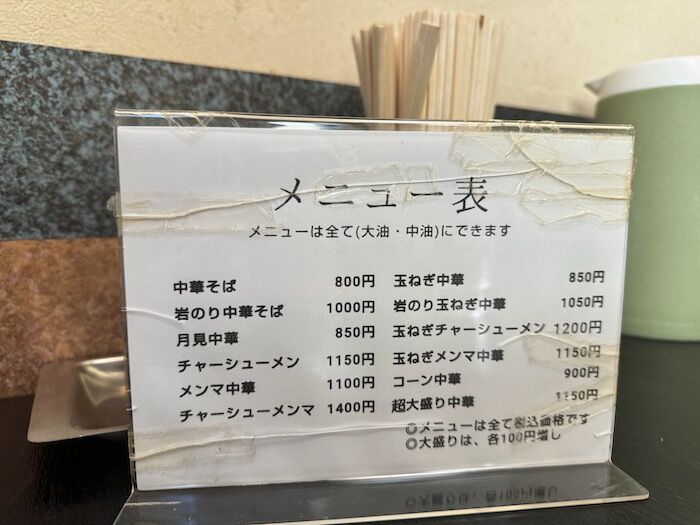 メニュー表
メニューは全て(大油・中油)にできます
中華そば 800円
岩のり中華そば 1000円
月見中華 850円
チャーシューメン 1150円
メンマ中華 1100円
チャーシューメンマ 1400円
玉ねぎ中華 850円
岩のり玉ねぎ中華 1050円
玉ねぎチャーシューメン 1200円
玉ねぎメンマ中華 1150円
コーン中華 900円
超大盛り中華
◎メニューは全て税込価格です
◎大盛りは、各100円増し